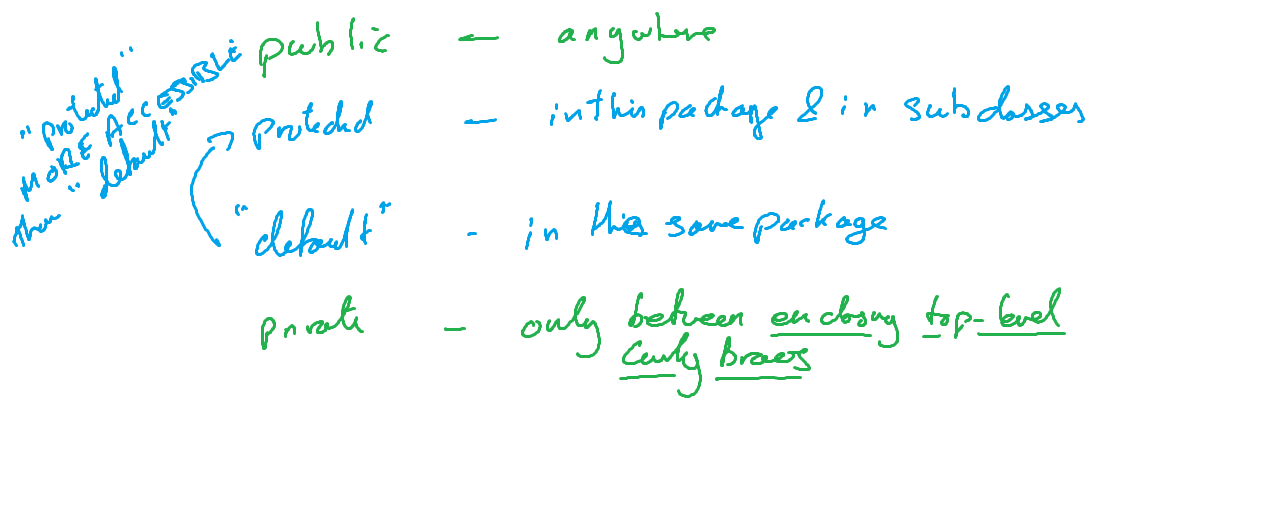 public – anywhere
"protected"
MORE ACCESSIBLE
than "default"
protected – in this package & in subclasses
"default" - in the same package
private – only between enclosing top-level
Curly Braces